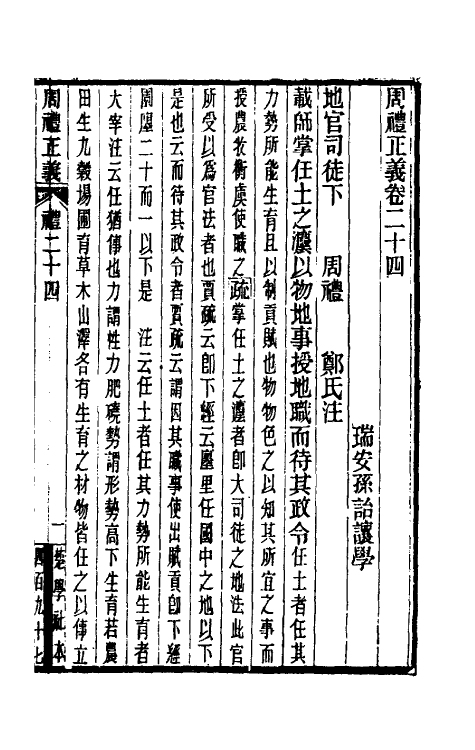 周禮正義卷二十四
瑞安孫詒讓學
地官司徒下 周禮 鄭氏注
載師掌任土之灋以物地事授地職而待其政令任土者任其
力勢所能生育且以制貢賦也物物色之以知其所宜之事而
授農牧衡虞使職之疏掌任土之灋者卽大司徒之地法此官
所受以爲官法者也賈疏云卽下經云廛里任國中之地以下
是也云而待其政令者賈疏云謂因其職事使出賦貢卽下經
園廛二十而一以下是 注云任土者任其力勢所能生育者
大宰注云任猶傳也力謂性力肥磽勢謂形勢高下生育若農
田生九穀場圃育草木山澤各有生育之材物皆任之以傳立
周禮正義 禮二十四 一 楚學社本
四百九十七